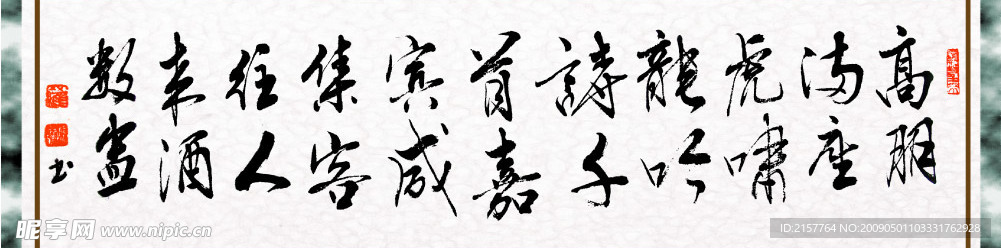 高朋
满座
虎啸
龙吟
诗千
首
嘉宾
咸集
客往
人来
酒数
盏
书
昵享网 www.nipic.cn
ID:2157764 NO:20090501103331762928